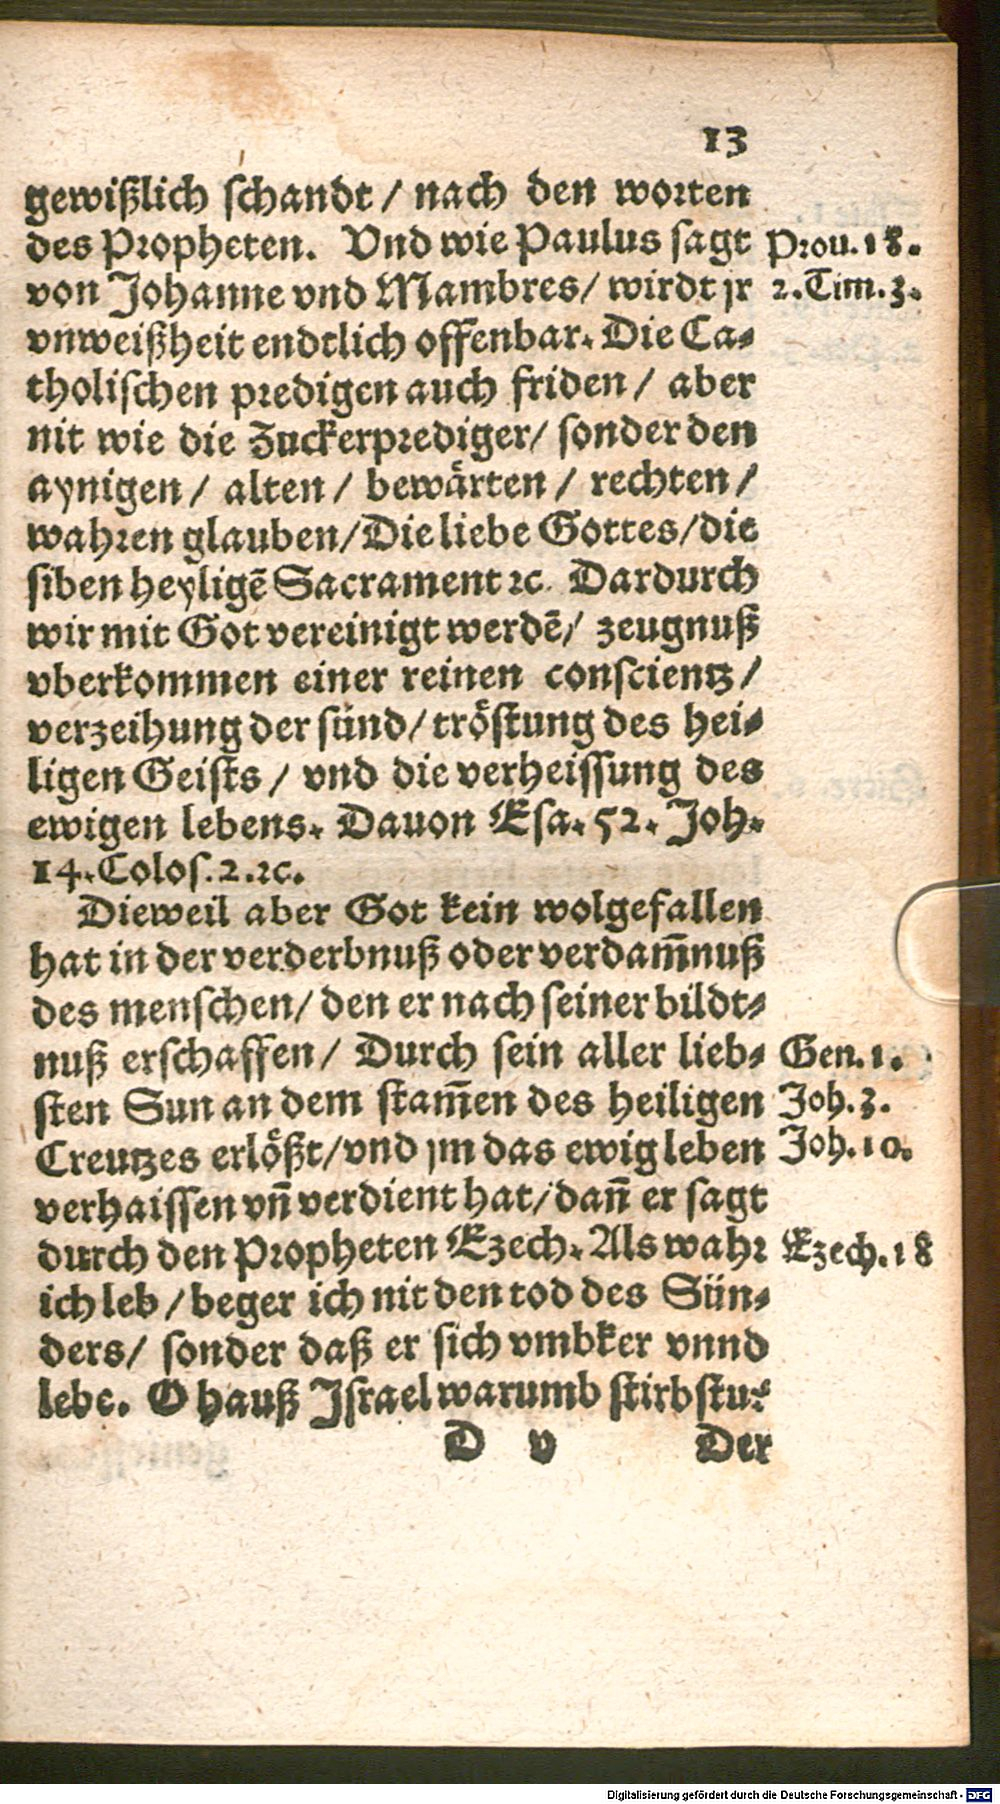 13
gewißlich schandt / nach den worten
des Propheten. Vnd wie Paulus sagt
Prou. 18.
von Johanne vnd Mambres / wirdt jr
2. Tim. 3.
vnweißheit endtlich offenbar. Die Ca-
tholischen predigen auch friden / aber
nit wie die Zuckerprediger / sonder den
aynigen / alten / bewärten / rechten /
wahren glauben / Die liebe Gottes / die
siben heyligē Sacrament ꝛc. Dardurch
wir mit Got vereinigt werdē / zeugnuß
vberkommen einer reinen conscientz /
verzeihung der sünd / tröstung des hei-
ligen Geists / vnd die verheissung des
ewigen lebens. Dauon Esa. 52. Joh.
14. Colos. 2. ꝛc.
Dieweil aber Got kein wolgefallen
hat in der verderbnuß oder verdam̄nuß
des menschen / den er nach seiner bildt-
nuß erschaffen / Durch sein aller lieb-
Gen. 1.
sten Sun an dem stam̄en des heiligen
Joh. 3.
Creutzes erlößt / vnd jm das ewig leben
Joh. 10.
verhaissen vn̄ verdient hat / dan̄ er sagt
durch den Propheten Ezech. Als wahr
Ezech. 18
ich leb / beger ich nit den tod des Sün-
ders / sonder daß er sich vmbker vnnd
lebe. O hauß Jsrael warumb stirbstu?
D v
Der
Digitalisierung gefördert durch die Deutsche Forschungsgemeinschaft - DFG